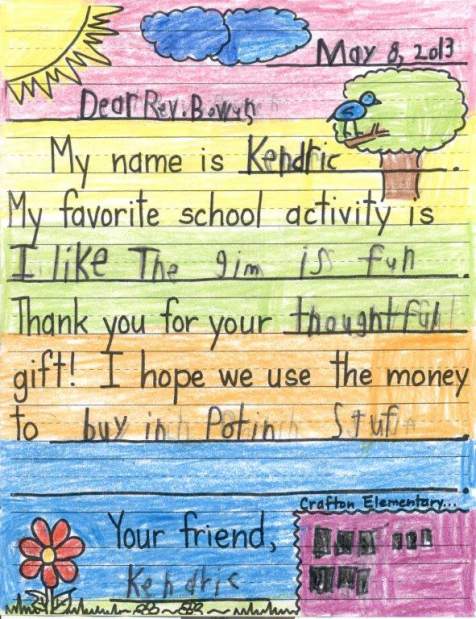 May 8, 2013
Dear Rev. Bowyk
My name is Kendric.
My favorite school activity is
I like The gim is fun.
Thank you for your thoughtful
gift! I hope we use the money
to buy in Potin Stuf
.
Crafton Elementary...
Your friend,
Kendric